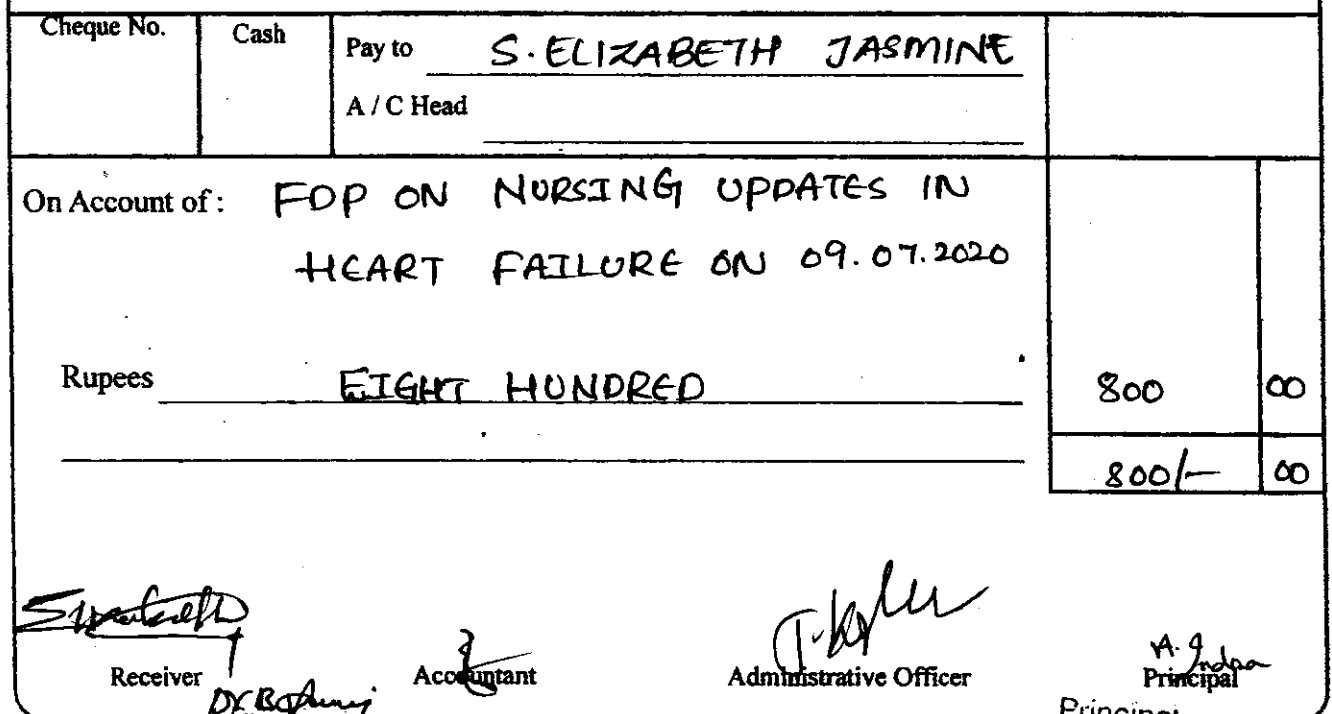 Cheque No. Cash Pay to S. ELIZABETH JASMINE
A / C Head
On Account of : FDP ON NURSING UPDATES IN
HEART FAILURE ON 09.07.2020
Rupees EIGHT HUNDRED 800 00
800/- 00
A. Indra
Receiver Accountant Administrative Officer Principal
Principal